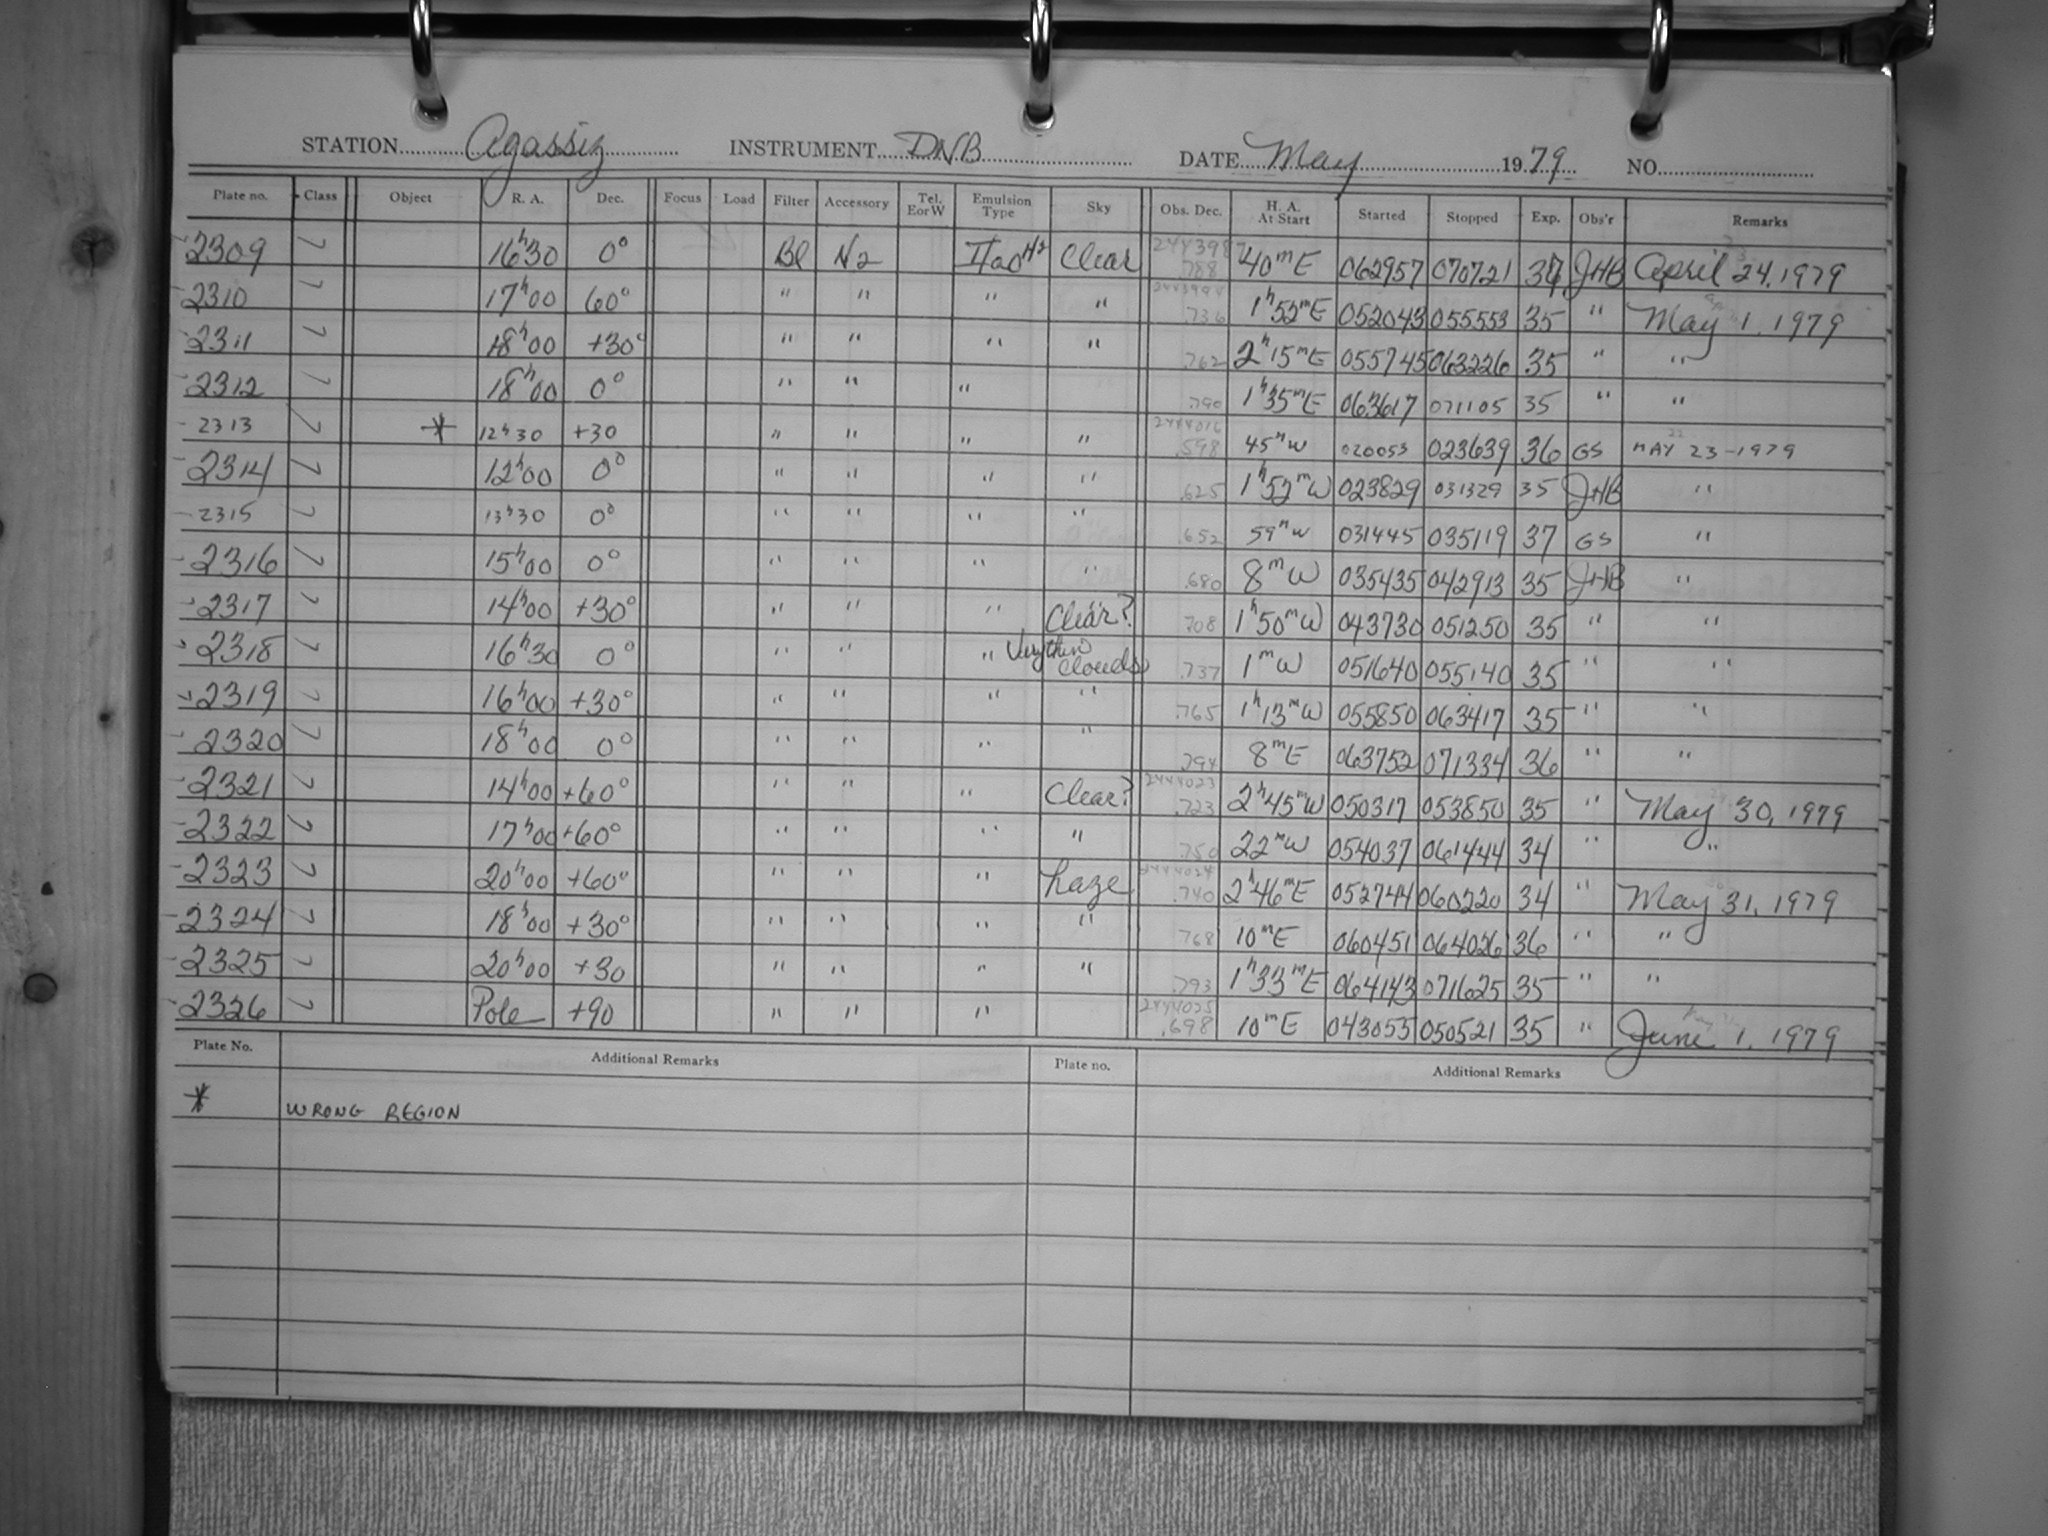 STATION Agassiz INSTRUMENT DNB DATE May 1979 NO.
Plate no. Class Object R. A. Dec. Focus Load Filter Accessory Tel. E or W Emulsion Type Sky Obs. Dec. H. A. At Start Started Stopped Exp. Obs'r Remarks
2309 7 16h30 0° Bl N2 IIaO H2 Clear .788 40mE 062957 070721 JHB April 24, 1979
2310 7 17h00 60° " " " " .736 1h52mE 052043 055553 35 " May 1, 1979
2311 7 18h00 +30° " " " " .762 2h15mE 055745 063226 35 " "
2312 7 18h00 0° " " " .790 1h35mE 063617 071105 35 " "
2313 7 * 12h30 +30 " " " " 2444016 .598 45mW 020053 023639 36 GS MAY 23-1979
2314 7 12h00 0° " " " " .625 1h52mW 023829 031329 35 JHB "
2315 7 13h30 0° " " " " .652 59mW 031445 035119 37 GS "
2316 7 15h00 0° " " " " .680 8mW 035435 042913 35 JHB "
2317 7 14h00 +30° " " " Clear? .708 1h50mW 043730 051250 35 " "
2318 7 16h30 0° " " " Very thin clouds .737 1mW 051640 055140 35 " "
2319 7 16h00 +30° " " " " .765 1h13mW 055850 063417 35 " "
2320 7 18h00 0° " " " " .794 8mE 063752 071334 36 " "
2321 7 14h00 +60° " " " Clear? 2444023 .723 2h45mW 050317 053850 35 " May 30, 1979
2322 7 17h00 +60° " " " " .750 22mW 054037 061444 34 " "
2323 7 20h00 +60° " " " haze 2444024 .740 2h46mE 052744 060220 34 " May 31, 1979
2324 7 18h00 +30° " " " " .768 10mE 060451 064026 36 " "
2325 7 20h00 +30 " " " " .793 1h33mE 064143 071625 35 " "
2326 7 Pole +90 " " " 2444025 .698 10mE 043055 050521 35 " June 1, 1979
Plate No. Additional Remarks Plate no. Additional Remarks
* WRONG REGION